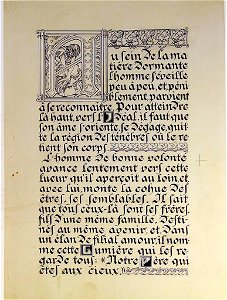 Au sein de la ma
tière dormante
l'homme s'éveille
peu à peu, et, péni
blement, parvient
à se reconnaître. Pour atteindre
là-haut, vers l'Idéal, il faut que
son âme s'oriente, se dégage, quit
te la région des ténèbres où le re
tient son corps.
L'homme de bonne volonté
avance lentement vers cette
lueur qu'il aperçoit au loin, et,
avec lui, monte la cohue des
êtres, ses semblables. Il sait
que tous ceux-là sont ses frères,
fils d'une même famille. Desti
nés au même avenir, et, dans
un élan de filial amour, il nom
me cette Lumière qui les re
garde tous : "Notre Père qui
êtes aux cieux,